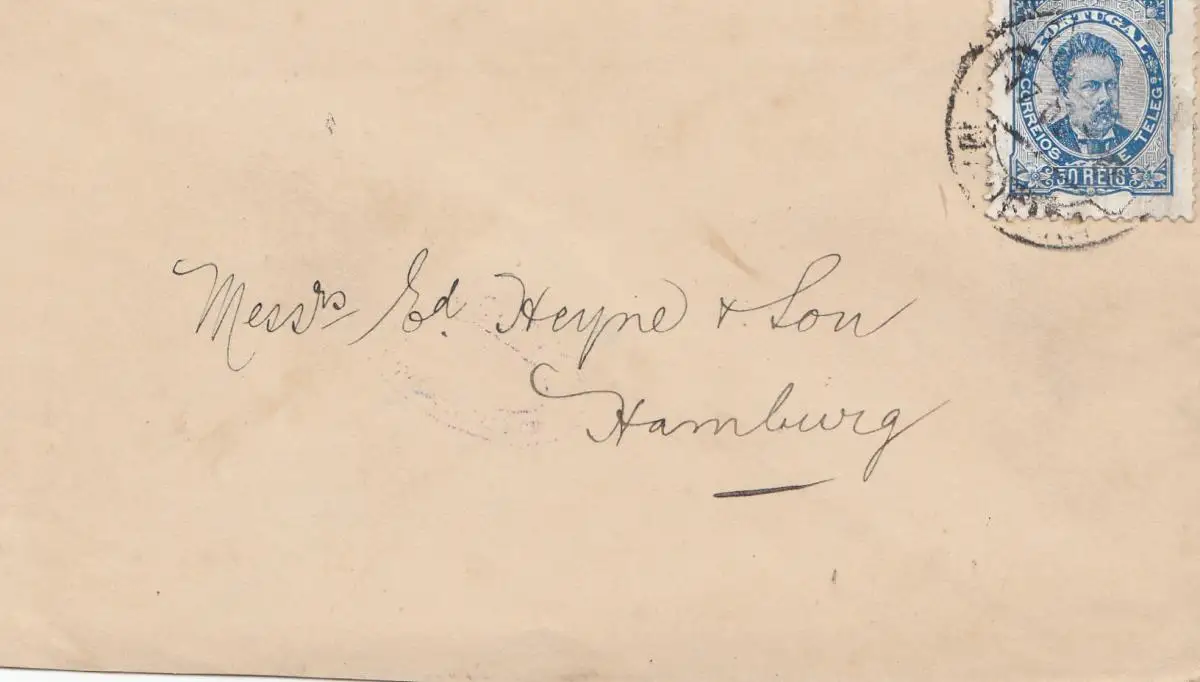 PORTUGAL
CORREIOS E TELEG
50 REIS
Messrs Ed. Heyne & Son
Hamburg